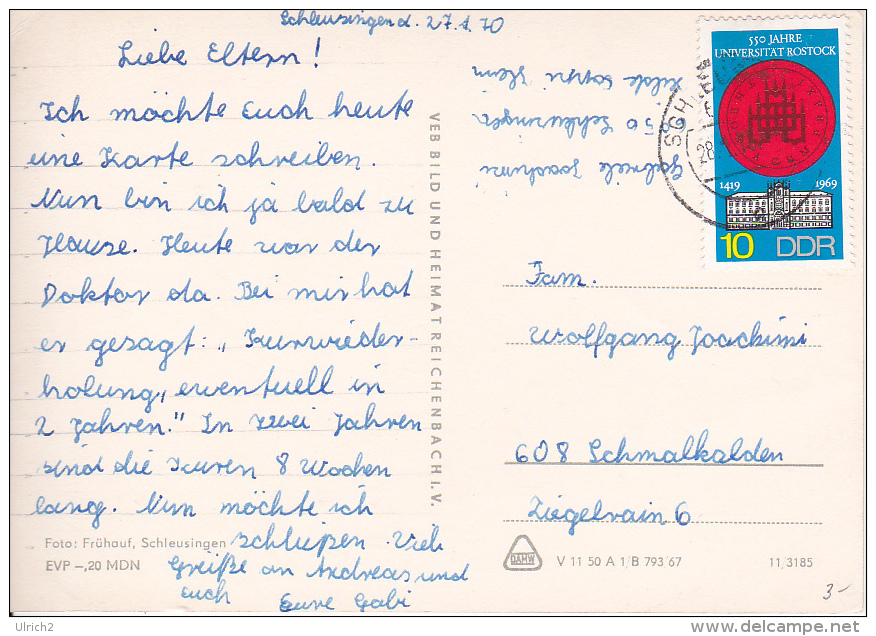 Schleusingen d. 27.1.70
Liebe Eltern!
Ich möchte Euch heute
eine Karte schreiben.
Nun bin ich ja bald zu
Hause. Heute war der
Doktor da. Bei mir hat
er gesagt: „Kurwieder-
holung, eventuell in
2 Jahren." In zwei Jahren
sind die Kuren 8 Wochen
lang. Nun möchte ich
schließen. Viele
Grüße an Andreas und
Euch
Eure Gabi
Foto: Frühauf, Schleusingen
EVP –,20 MDN
VEB BILD UND HEIMAT REICHENBACH I. V.
Gabriele Joachimi
Schleusingen
550 JAHRE
UNIVERSITÄT ROSTOCK
1419 1969
10 DDR
28.
Fam.
Wolfgang Joachimi
608 Schmalkalden
Ziegelrain 6
DAMW
V 11 50 A 1/B 793/67
11/3185
3-
Ulrich2
delcampe.net